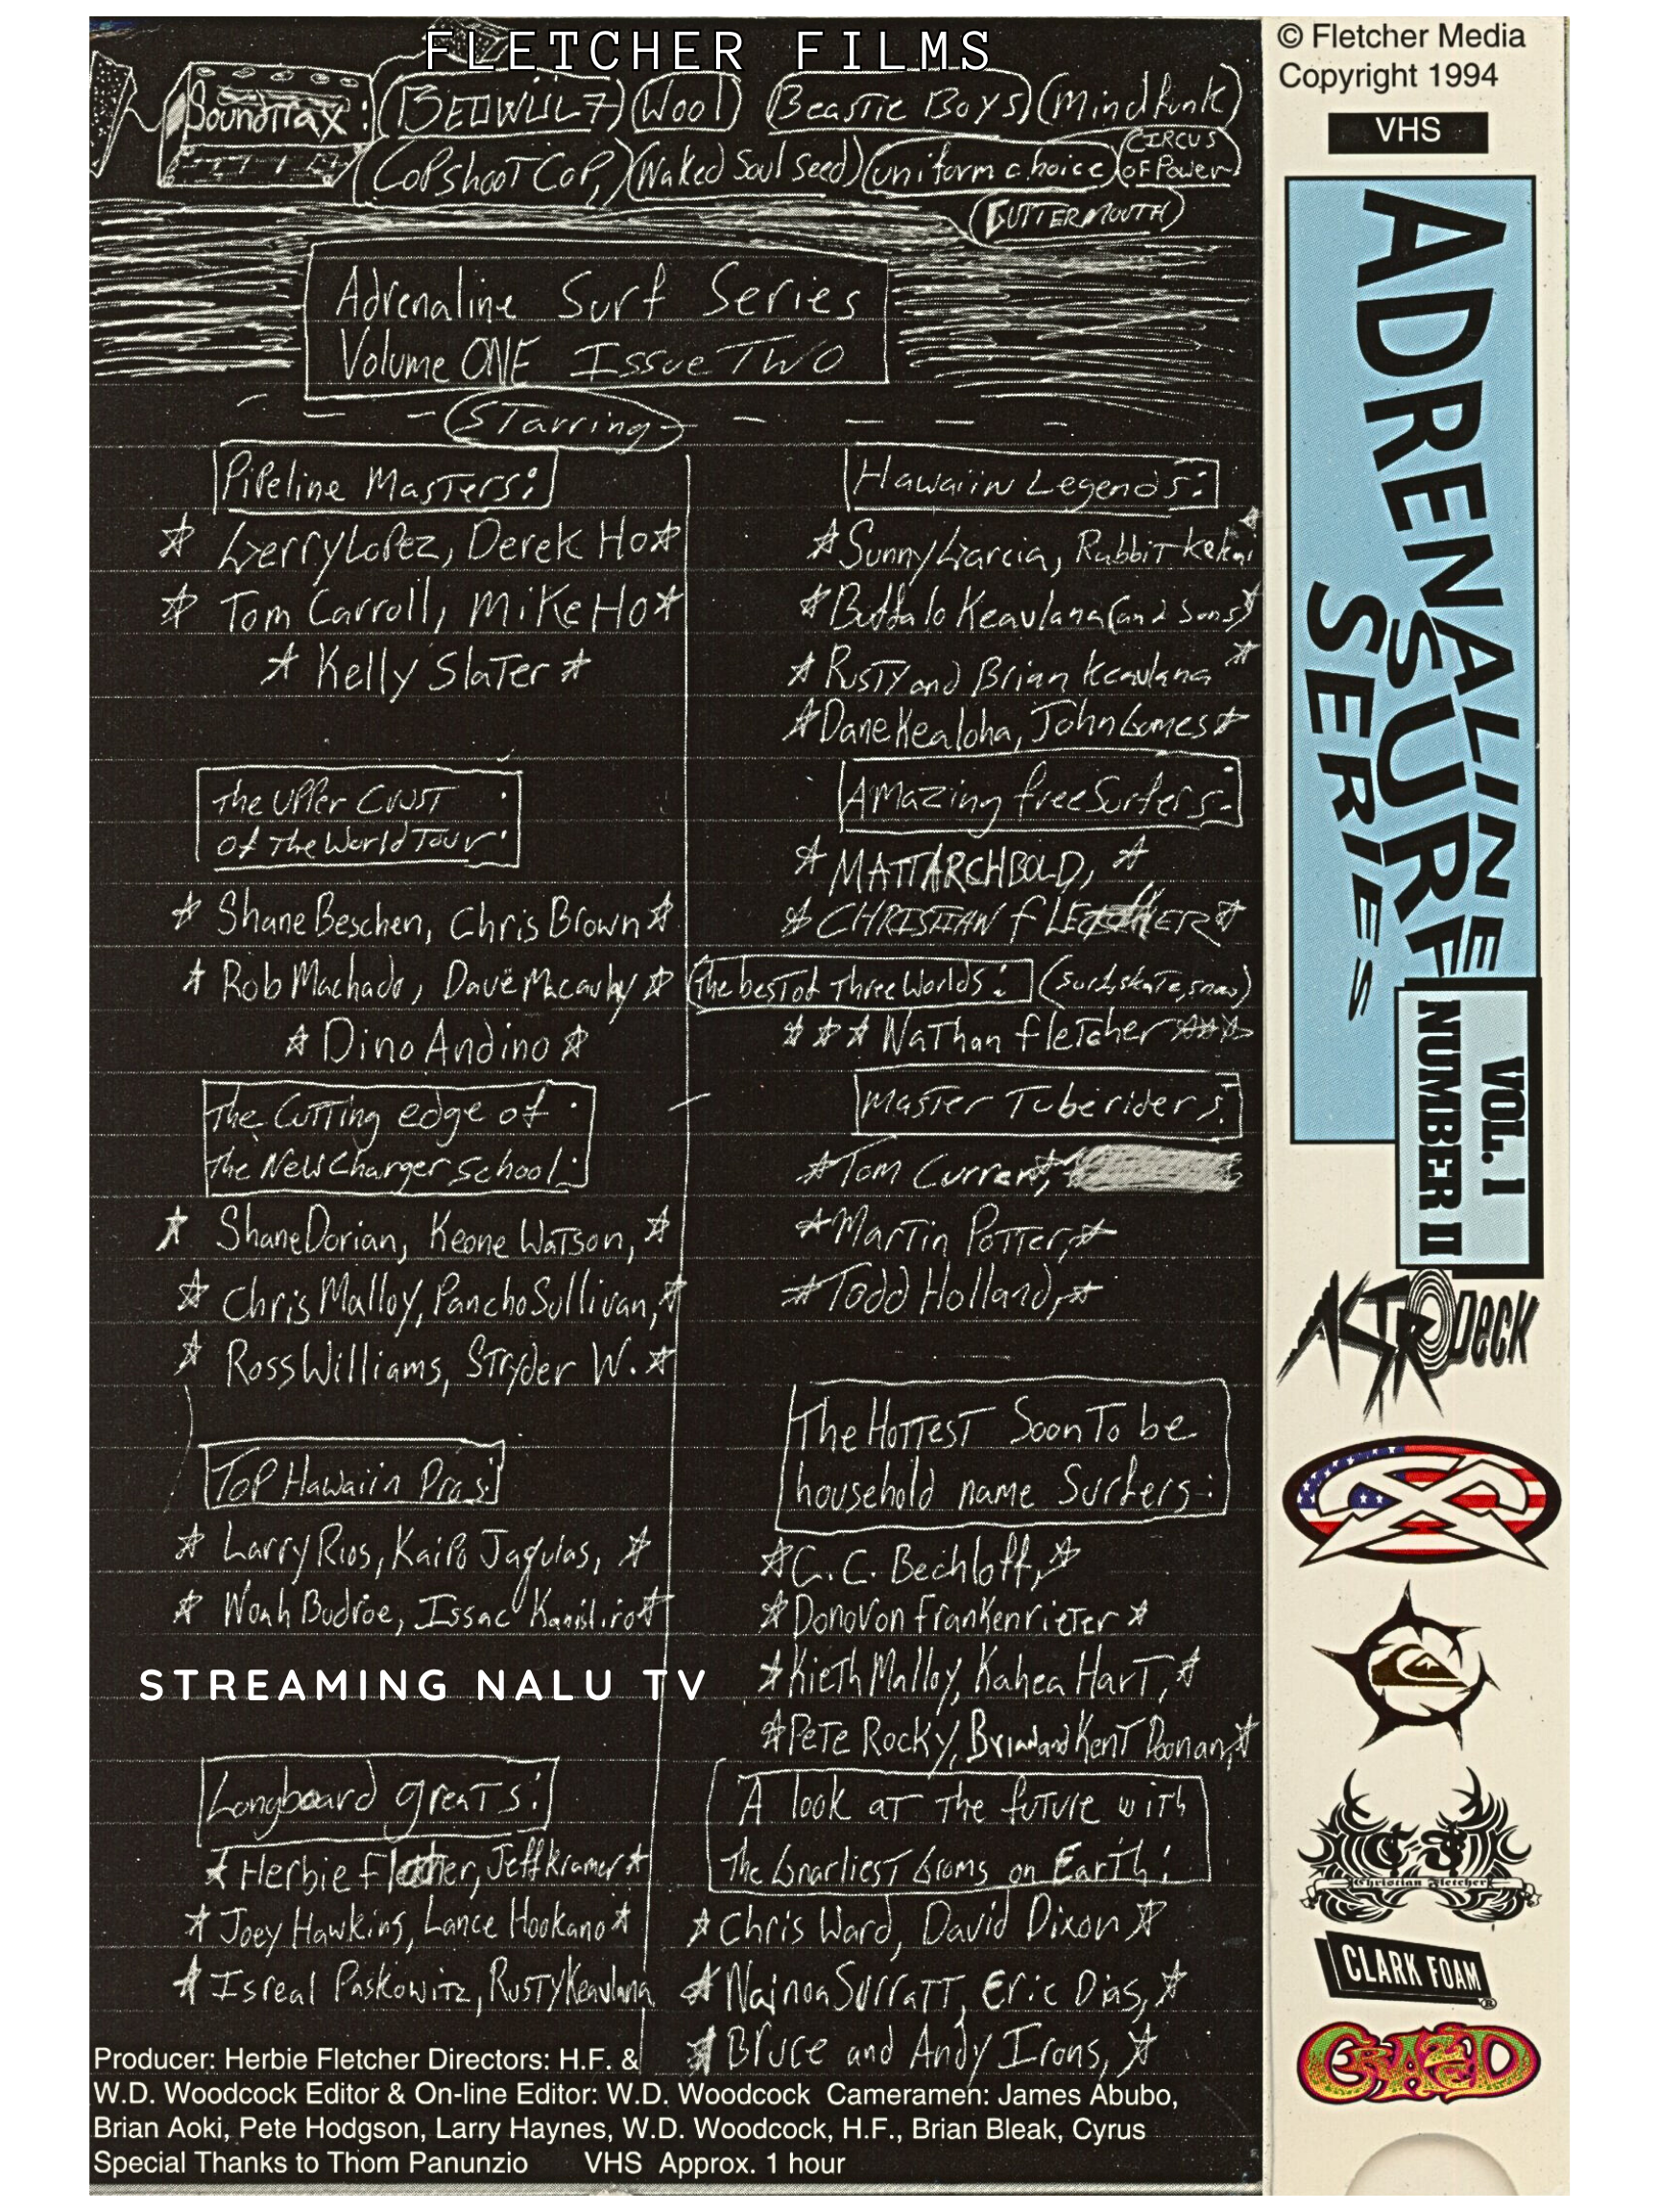 FLETCHER FILMS
Soundtrax:
BEOWÜLF
Wool
Beastie Boys
Mindfunk
CopshootCop,
Naked Soul Seed
uniform choice
CIRCUS
OF Power
GUTTERMOUTH
Adrenaline Surf Series
Volume ONE Issue TWO
Starring
Pipeline Masters:
Gerry Lopez, Derek Ho
Tom Carroll, Mike Ho
Kelly Slater
The Upper Crust
of The World Tour:
Shane Beschen, Chris Brown
Rob Machado, Dave Macaulay
Dino Andino
The Cutting edge of
The New Charger School:
Shane Dorian, Keone Watson,
Chris Malloy, Pancho Sullivan,
Ross Williams, Stryder W.
Top Hawaiin Pros:
Larry Rios, Kaipo Jaquias,
Noah Budroe, Issac
STREAMING NALU TV
Longboard greats:
Herbie Fletcher, Jeff Kramer
Joey Hawkins, Lance Hookano
Isreal Paskowitz, Rusty Keaulana
Hawaiin Legends:
Sunny Garcia, Rabbit Kekai
Buffalo Keaulana (and sons)
Rusty and Brian Keaulana
Dane Kealoha, John Gomes
Amazing freeSurfers:
MATT ARCHBOLD,
CHRISTIAN FLETCHER
The best of Three Worlds: (surf, skate, snow)
Nathan Fletcher
Master Tuberiders:
Tom Curren,
Martin Potter,
Todd Holland,
The Hottest Soon To be
household name Surfers:
C.C. Bechloff,
Donovon Frankenrieter
Kieth Malloy, Kahea Hart,
Pete Rocky, Brian and Kent Doonan,
A look at the future with
The Gnarliest Groms on Earth:
Chris Ward, David Dixon
Nainoa Surratt, Eric Dias,
Bruce and Andy Irons,
Producer: Herbie Fletcher Directors: H.F. &
W.D. Woodcock Editor & On-line Editor: W.D. Woodcock Cameramen: James Abubo,
Brian Aoki, Pete Hodgson, Larry Haynes, W.D. Woodcock, H.F., Brian Bleak, Cyrus
Special Thanks to Thom Panunzio VHS Approx. 1 hour
© Fletcher Media
Copyright 1994
VHS
ADRENALINE
SURF
SERIES
VOL. I
NUMBER II
ASTRODECK
Christian Fletcher
CLARK FOAM®
CRAZED